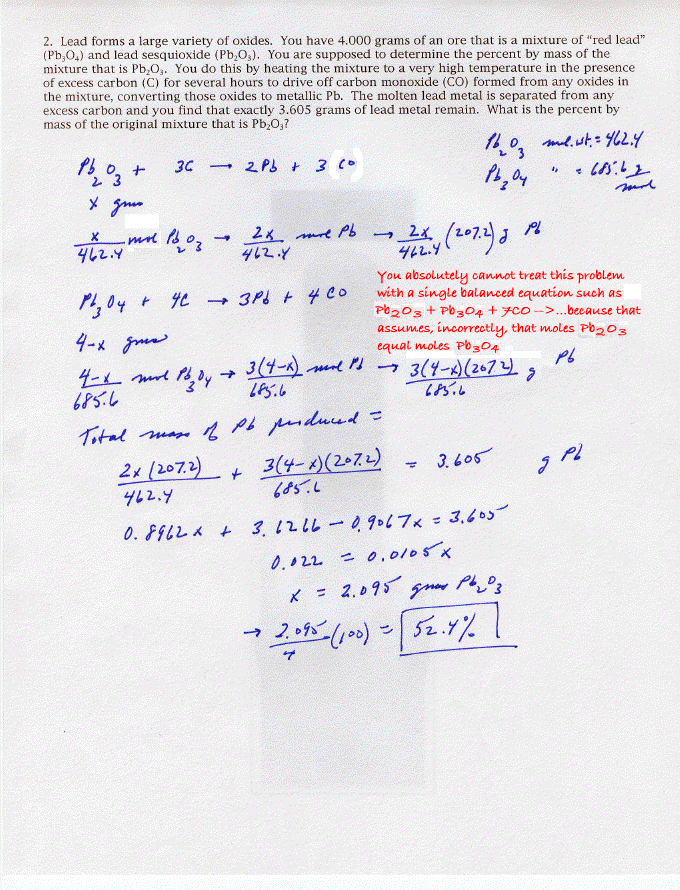 2. Lead forms a large variety of oxides. You have 4.000 grams of an ore that is a mixture of “red lead”
(Pb₃O₄) and lead sesquioxide (Pb₂O₃). You are supposed to determine the percent by mass of the
mixture that is Pb₂O₃. You do this by heating the mixture to a very high temperature in the presence
of excess carbon (C) for several hours to drive off carbon monoxide (CO) formed from any oxides in
the mixture, converting those oxides to metallic Pb. The molten lead metal is separated from any
excess carbon and you find that exactly 3.605 grams of lead metal remain. What is the percent by
mass of the original mixture that is Pb₂O₃?
Pb₂O₃ mol.wt. = 462.4
Pb₃O₄ " = 685.6 g/mol
Pb₂O₃ + 3C → 2Pb + 3CO
x gms
x/462.4 mol Pb₂O₃ → 2x/462.4 mole Pb → 2x/462.4 (207.2) g Pb
Pb₃O₄ + 4C → 3Pb + 4CO
4-x gms
You absolutely cannot treat this problem
with a single balanced equation such as
Pb₂O₃ + Pb₃O₄ + 7CO -->...because that
assumes, incorrectly, that moles Pb₂O₃
equal moles Pb₃O₄
4-x/685.6 mol Pb₃O₄ → 3(4-x)/685.6 mol Pb → 3(4-x)(207.2)/685.6 g Pb
Total mass of Pb produced =
2x(207.2)/462.4 + 3(4-x)(207.2)/685.6 = 3.605 g Pb
0.8962x + 3.6266 - 0.9067x = 3.605
0.022 = 0.0105x
x = 2.095 gms Pb₂O₃
→ 2.095/4 (100) = 52.4%